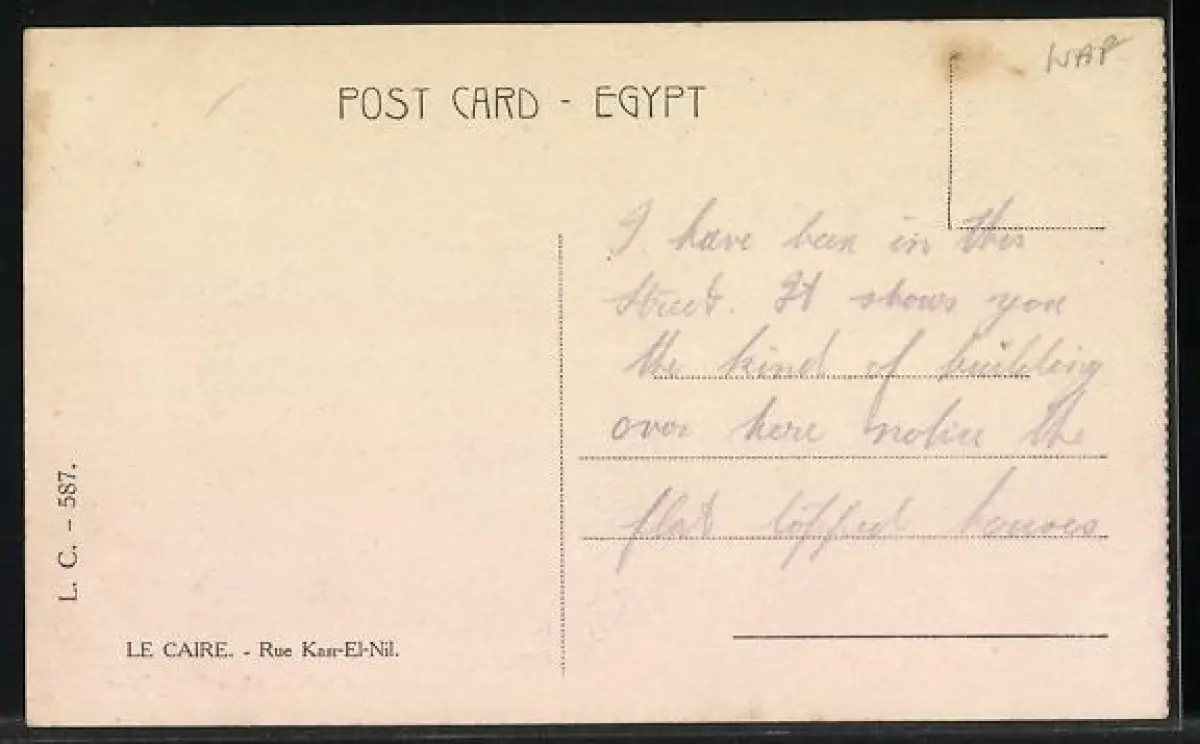 POST CARD - EGYPT
WAP
I have been in this
street. It shows you
the kind of building
over here notice the
flat topped houses
L. C. - 587.
LE CAIRE. - Rue Kasr-El-Nil.